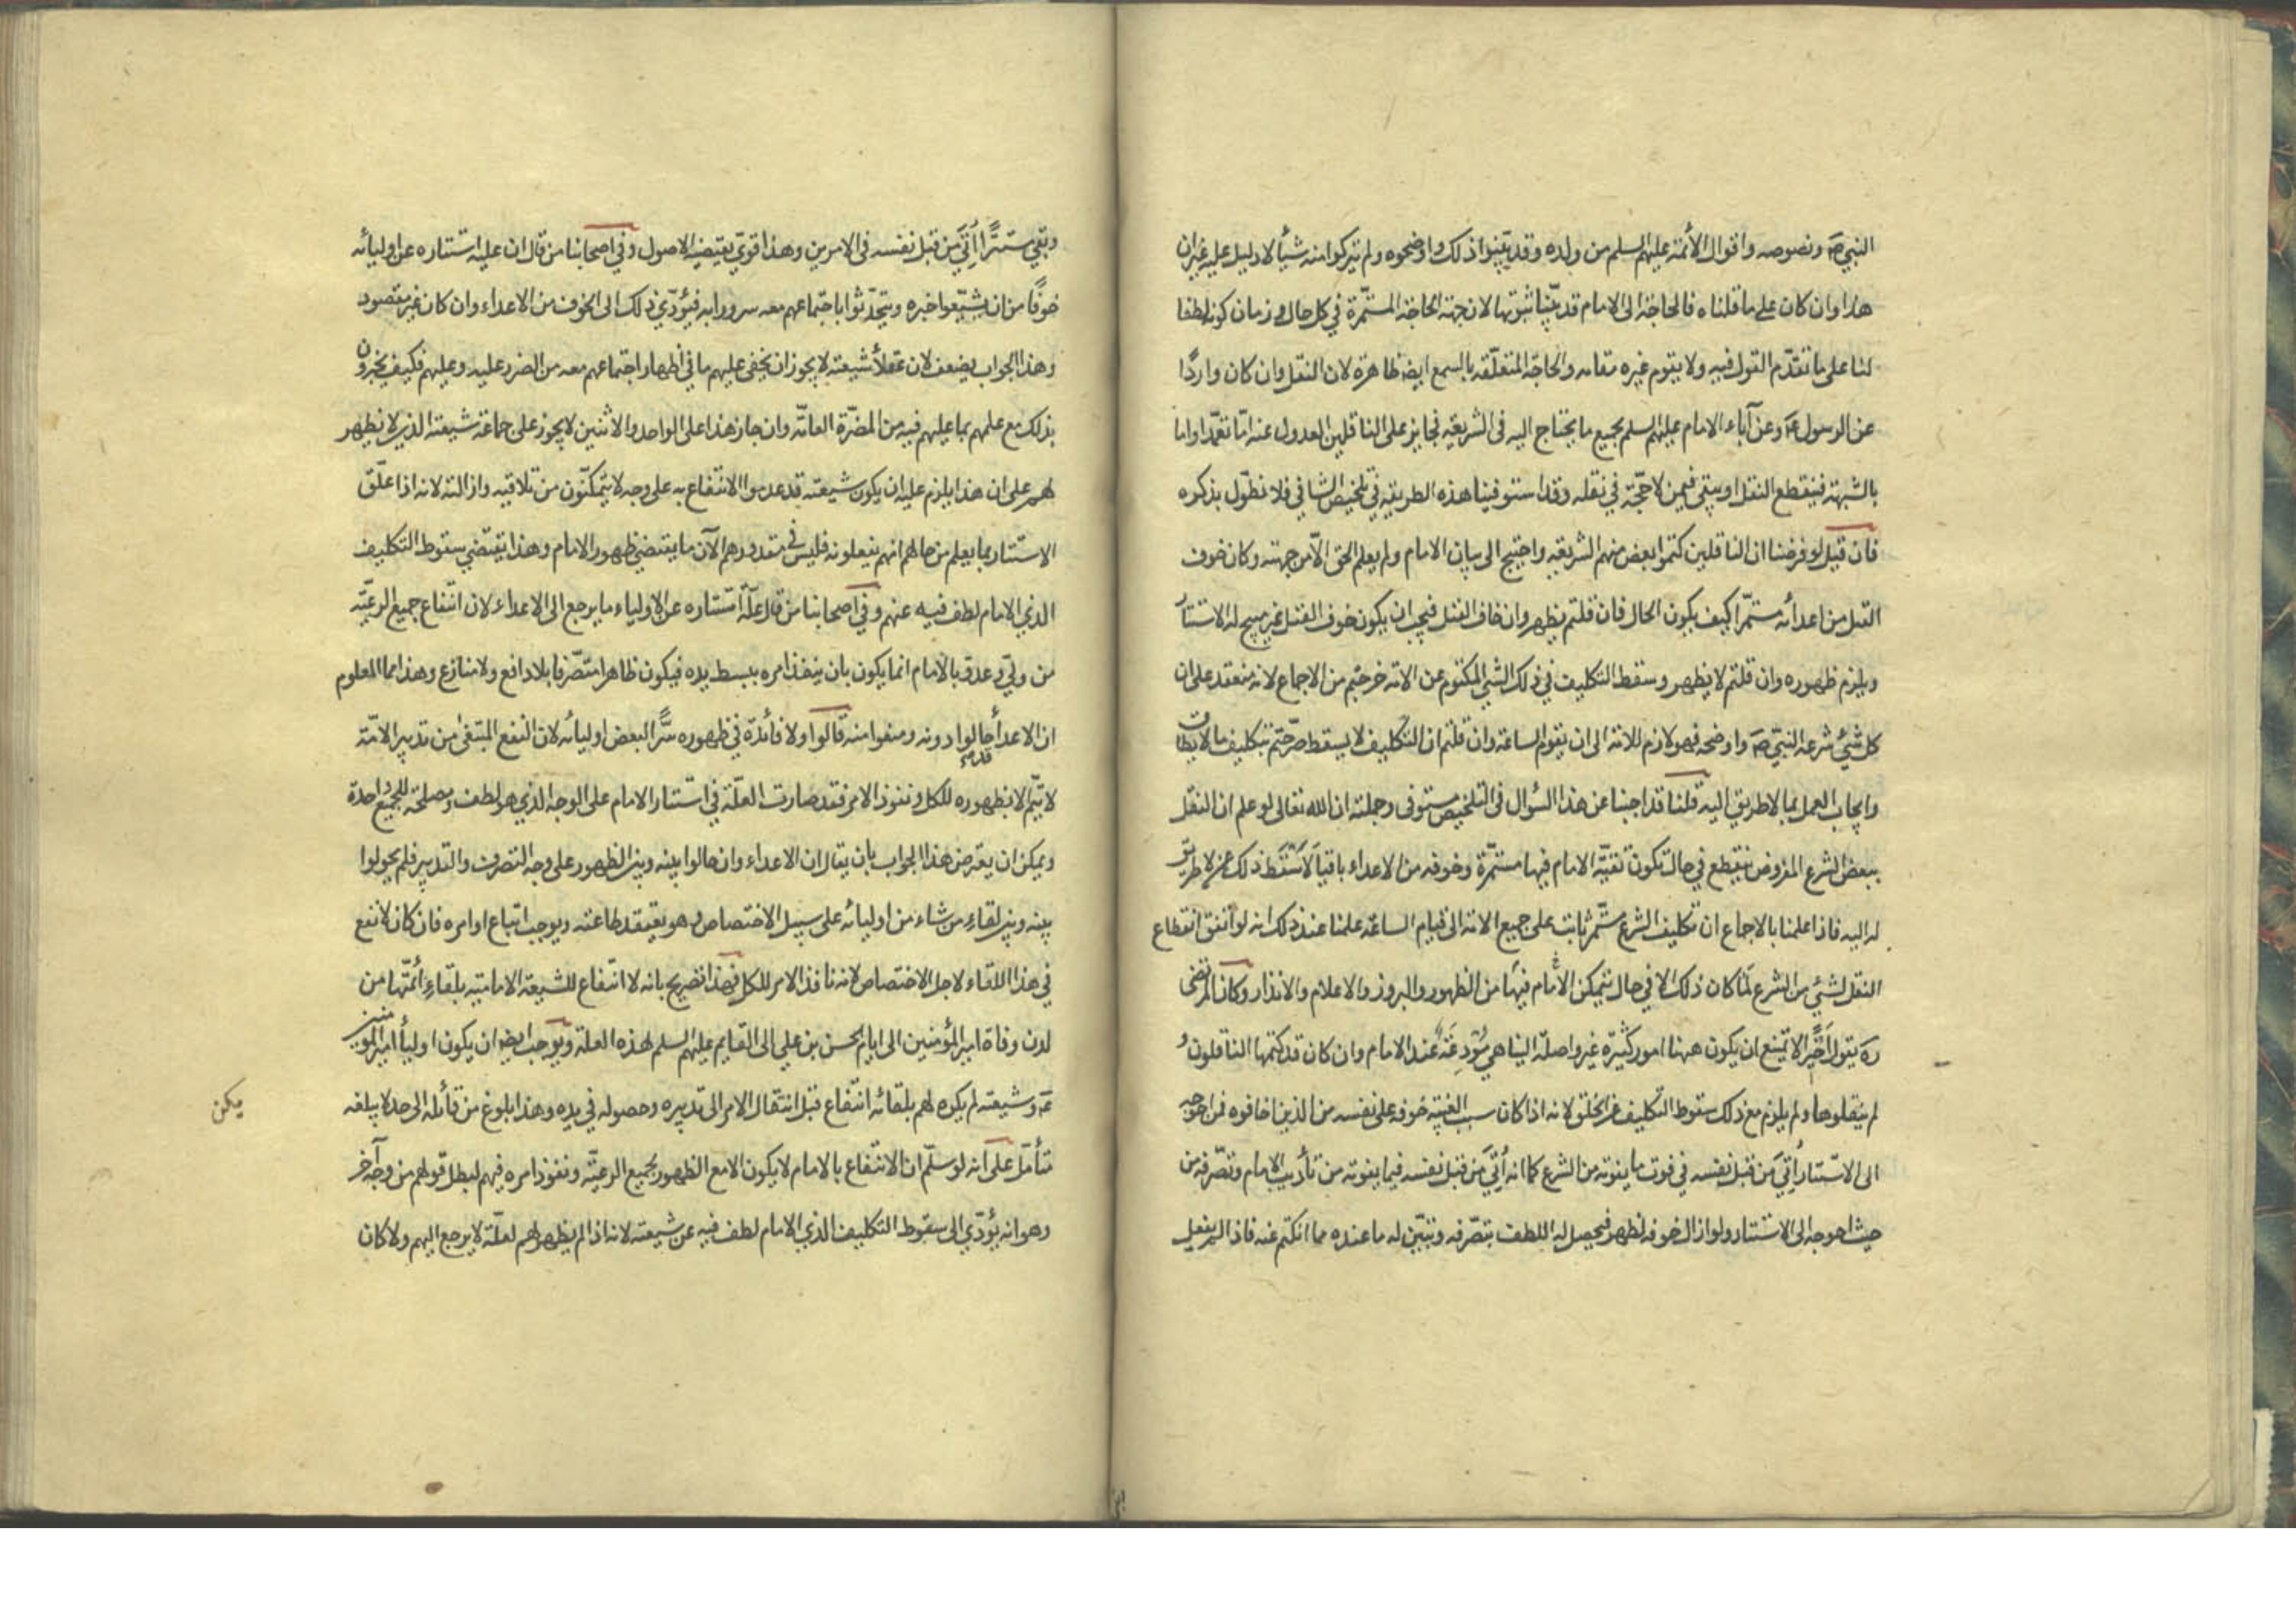 النبي ص ونصوصه واقوال الأئمة عليهم السلم من ولده وقد بينوا ذلك واوضحوه ولم يتركوا منه شيأ لا دليل عليه غير ان
هذا وان كان على ما قلناه فالحاجة الى الامام قد بينا ثبوتها لان جهة الحاجة المستمرة في كل حال وزمان كونه لطفا
لنا على ما تقدّم القول فيه ولا يقوم غيره مقامه والحاجة المتعلّقة بالسمع ايضا ظاهرة لان النقل وان كان واردًا
عن الرسول ع وعن آباء الامام عليهم السلم بجميع ما يحتاج اليه فى الشريعة فجايز على الناقلين العدول عنه امّا تعمّدا واما
بالشبهة فينقطع النقل او يبقى فيمن لا حجّة في نقله وقد استوفينا هذه الطريقة في تلخيص الشافي فلا نطوّل بذكره
فان قيل لو فرضنا ان الناقلين كتموا بعض منهم الشريعة واحتيج الى بيان الامام ولم يعلم الحق الّا من جهته وكان خوف
القتل من اعدائه مستمّرا كيف يكون الحال فان قلتم يظهر وان خاف القتل فيجب ان يكون خوف القتل غير مبيح له الاستتار
ويلزم ظهوره وان قلتم لا يظهر وسقط التكليف في ذلك الشئ المكتوم عن الامة خرجتم من الاجماع لانه منعقد على ان
كل شئ شرعه النبي ص واوضحه فهو لازم للامة الى ان يقوم الساعة وان قلتم ان التكليف لا يسقط صرّحتم بتكليف ما لا يطاق
وايجاب العمل بما لا طريق اليه قلنا قد اجبنا عن هذا السؤال فى التلخيص مستوفى وجملته ان الله تعالى لو علم ان النقل
ببعض الشرع المفروض ينقطع في حال تكون تقيّة الامام فيها مستمّرة وخوفه من الاعداء باقيا لاسقط ذلك عمن لا طريق
له اليه فاذا علمنا بالاجماع ان تكليف الشرع مستّمر ثابت على جميع الامة الى قيام الساعة علمنا عند ذلك انه لو اتفق انقطاع
النقل لشئ من الشرع لما كان ذلك الا في حال يتمكن الامام فيها من الظهور والبروز والاعلام والانذار وكان المرتضى
ره يقول اخيرا لا يمتنع ان يكون ههنا امور كثيرة غير واصلة الينا هي مودعة عند الامام وان كان قد كتمها الناقلون و
لم ينقلوها ولم يلزم مع ذلك سقوط التكليف عن الخلق لانه اذا كان سبب الغيبة خوفه على نفسه من الذين اخافوه فمن احوجه
الى الاستتار اُتي من قبل نفسه في فوت ما يفوته من الشرع كما انه اُتي من قبل نفسه فيما يفوته من تأديب الامام وتصّرفه من
حيث احوجه الى الاستتار ولو ازال خوفه لظهر فيحصل له اللطف بتصّرفه وتبيّن له ما عنده مما انكتم عنه فاذا لم يفعل
وبقي مستترًا اُتي من قبل نفسه فى الامرين وهذا قوي يقتضيه الاصول وفي اصحابنا من قال ان علية استتاره عن اوليائه
خوفًا من ان يشيّعوا خبره ويتحدّثوا باجتماعهم معه سرورا به فيؤدّي ذلك الى الخوف من الاعداء وان كان غير مقصود
وهذا الجواب يضعف لان عقلاء شيعته لا يجوز ان يخفى عليهم ما في اظهار اجتماعهم معه من الضرر عليه وعليهم فكيف يخبرون
بذلك مع علمهم بما عليهم فيه من المضرّة العامّة وان جاز هذا على الواحد والاثنين لا يجوز على جماعة شيعته الذين لا يظهر
لهم على ان هذا يلزم عليه ان يكون شيعته قد عدموا الانتفاع به على وجه لا يتمكنّون من تلاقيه وازالته لانه اذا علّق
الاستتار بما يعلم من حالهم انهم يفعلونه فليس في مقدورهم الآن ما يقتضي ظهور الامام وهذا يقتضي سقوط التكليف
الذي الامام لطف فيه عنهم وفي اصحابنا من قال علّة استتاره عن الاولياء ما يرجع الى الاعداء لان انتفاع جميع الرعيّة
من وليّ وعدوّ بالامام انما يكون بان ينفذ امره ببسط يده فيكون ظاهرا متصّرفا بلا دافع ولا منازع وهذا مما المعلوم
ان الاعدأ حالوا دونه ومنعوا منه قالوا ولا فائدة في ظهوره سًّرا لبعض اوليائه لان النفع المبتغى من تدبير الامّة
لا يتّم الا بظهوره للكل ونفوذ الامر فقد صارت العلّة في استتار الامام على الوجه الذي هو لطف ومصلحة للجميع واحدة
ويمكن ان يعترض هذا الجواب بان يقال ان الاعداء وان حالوا بينه وبين الظهور على وجه التصرف والتدبير فلم يحولوا
بينه وبين لقاء من شاء من اوليائه على سبيل الاختصاص وهو يعتقد طاعته ويوجب اتباع اوامره فان كان لا نفع
في هذا اللقاء لاجل الاختصاص لانه نافذ الامر للكل فهذا تصريح بانه لا انتفاع للشيعة الامامية بلقاء ائمّتها من
لدن وفاة امير المؤمنين الى ايام الحسن بن علي الى القايم عليهم السلم لهذه العلة ويوجب ايضا ان يكون اوليأ امير المومنين
ع وشيعته لم يكن لهم بلقائه انتفاع قبل انتقال الامر الى تدبيره وحصوله في يده وهذا بلوغ من قائله الى حد لا يبلغه
متأمّل على انه لو سلّم ان الانتفاع بالامام لا يكون الا مع الظهور لجميع الرعيّة ونفوذ امره فيهم لبطل قولهم من وجه آخر
وهو انه يؤدّي الى سقوط التكليف الذي الامام لطف فيه عن شيعته لانه اذا لم يظهر لهم لعلّة لا يرجع اليهم ولا كان
يمكن